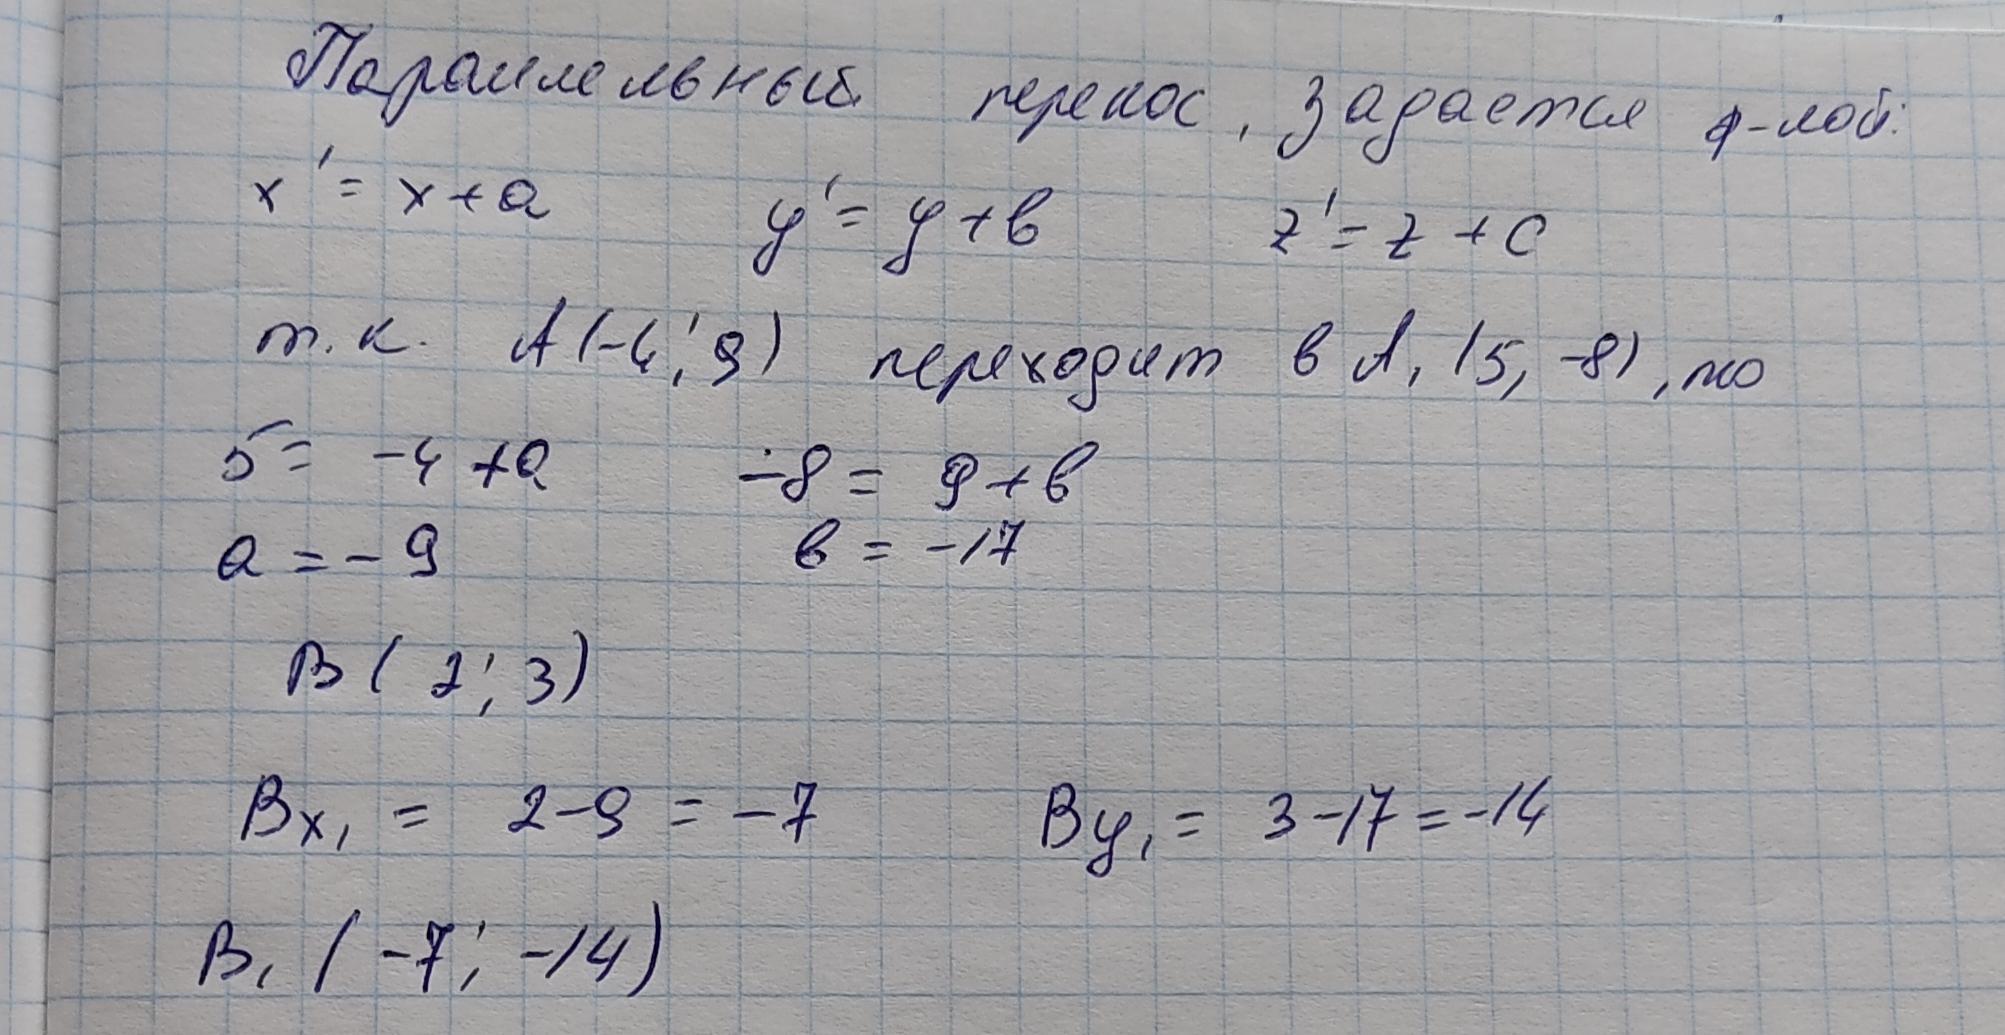 Параллельный перенос, задается ф-лой:
x' = x + a y' = y + в z' = z + c
т.к. A(-4; 9) переходит в A₁(5, -8), то
5 = -4 + a -8 = 9 + в
a = -9 в = -17
B(2; 3)
Bx₁ = 2-9 = -7 By₁ = 3-17 = -14
B₁(-7; -14)